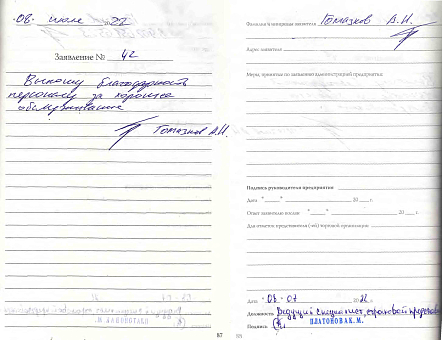 08 июле 22
Заявление № 42
Выношу благодарность
персоналу за хорошее
обслуживание
Гомазков А.И.
87
Фамилия и инициалы заявителя Гомазков А.И.
Адрес заявителя
Меры, принятые по заявлению администрацией предприятия:
Подпись руководителя предприятия
Дата " " 20 г.
Ответ заявителю послан " " 20 г.
Для отметок представителя (-ей) торговой организации
Дата 08.07 2022 г.
Должность Ведущий специалист, страховой
Подпись ПЛАТОНОВА К. М.